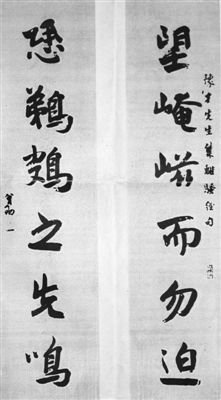 豫才先生集離騷經句
望崦嵫而勿迫
恐鵜鴂之先鳴